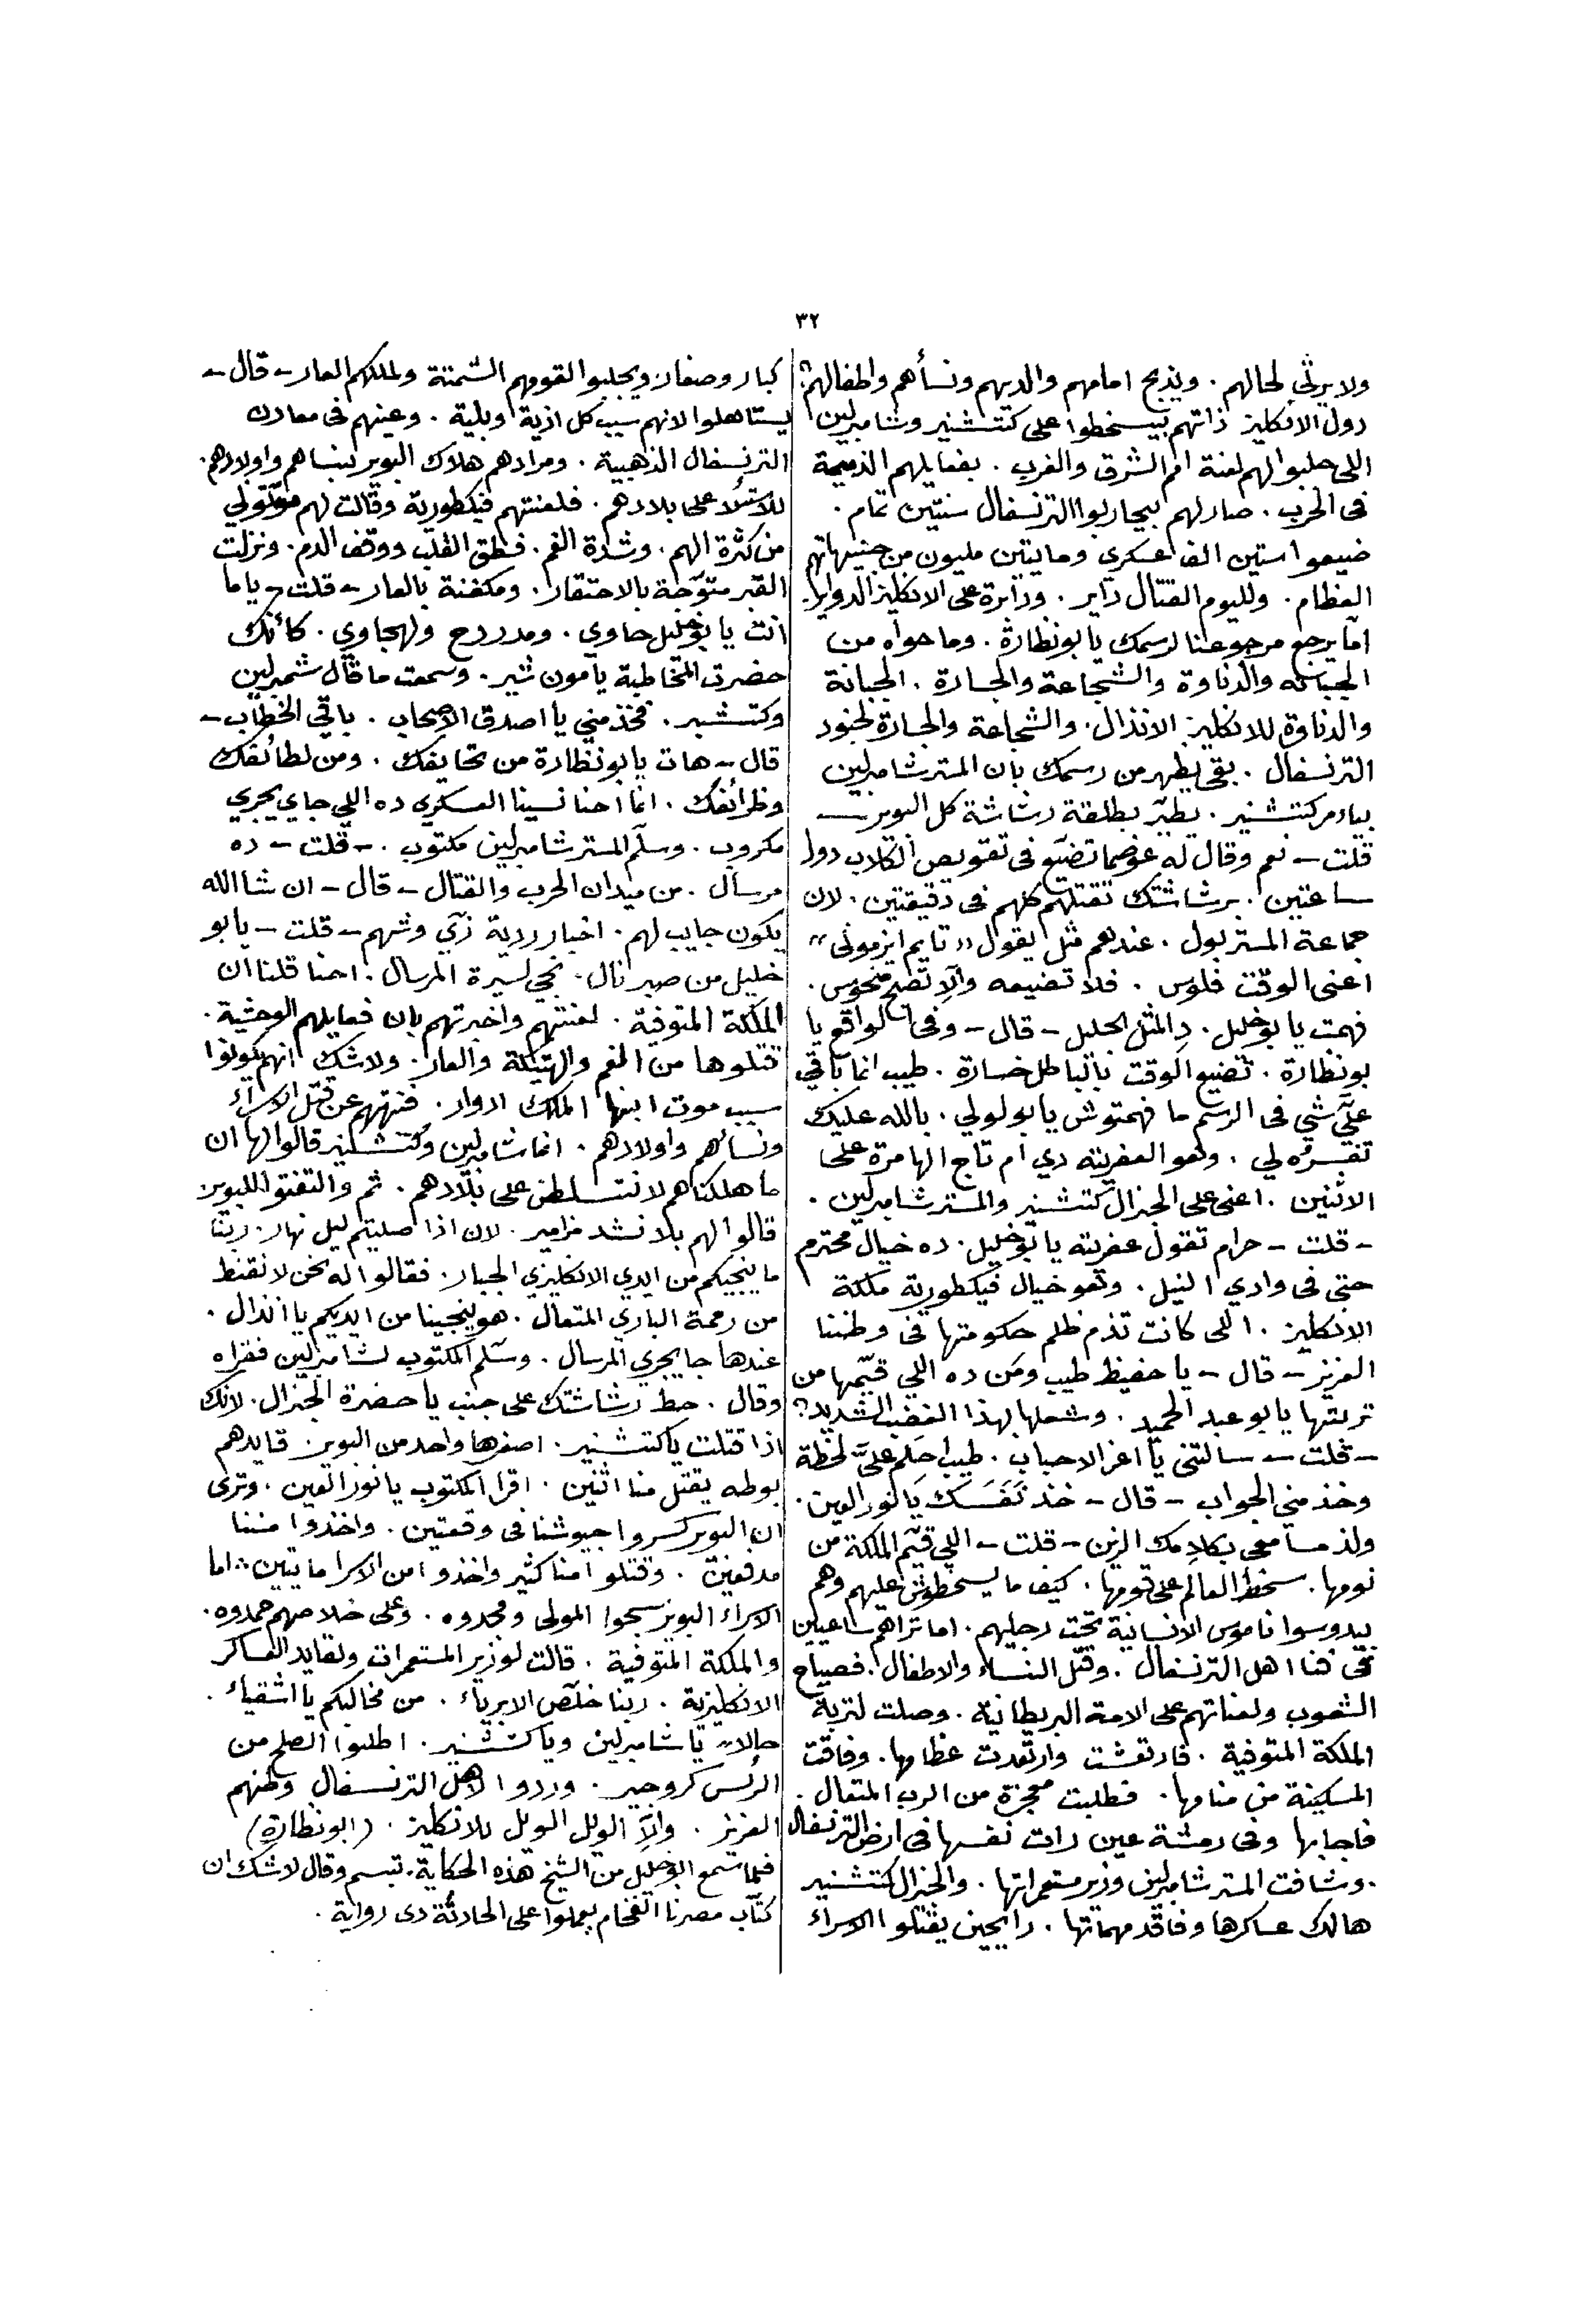 ٣٢
ولا يرثي لحالهم . ويذبح امامهم والديهم ونسأهم واطفالهم ؟
دول الانكليز ذاتهم بيسخطوا على كتتشنير وشامبرلين
اللى جلبوا لهم لعنة امم الشرق والغرب . بفعايلهم الذميمة
فى الحرب . صار لهم بيحاربوا الترنسفال سنتين تمام .
ضيعوا ستين الف عسكري وما يتين مليون من جنيهاتهم
العظام . ولليوم القتال داير . ودائرة على الانكليز الدواير .
اما يرجع مرجوعنا لرسمك يا بونظارة . وما حواه من
الجبانه والدناوة والشجاعة والجسارة . الجبانة
والدناوة للانكليز الانذال . والشجاعة والجسارة لجنود
الترنسفال . بقى يظهر من رسمك بان المستر شامبرلين
بيامر كتتشنير . يطير بطلقة رشاشة كل البوير —
قلت – نعم وقال له عوضما تضيع فى تقويص الكلاب دول
ساعتين . برشاشتك تقتلهم كلهم فى دقيقتين . لان
جماعة المستر بول . عندهم مثل يقول « تايم ايز مونى »
اعنى الوقت فلوس . فلا تضيعه والا تصبح منحوس .
فهمت يا بو خليل . دِ المثل الجليل – قال – وفى الواقع يا
بونظارة . تضييع الوقت بالباطل خسارة . طيب انما باقي
عليَّ شي فى الرسم ما فهمتوش يا بولولي . بالله عليك
تفسره لي . وهو العفريته دي ام تاج الهامرة على
الاثنين . اعنى على الجنرال كتتشنير والمستر شامبرلين .
– قلت – حرام تقول عفريته يا بو خليل . ده خيال محترم
حتى فى وادي النيل . وهو خيال فيكطورية ملكة
الانكليز . اللى كانت تذم ظلم حكومتها فى وطننا
العزيز – قال – يا حفيظ طيب ومن ده اللي قيّمها من
تربتها يا بو عبد الحميد . وشعلها بهذا الغضب الشديد ؟
– قلت – سالتنى يا اعز الاحباب . طيب احلم عليَّ لحظة
وخذ مني الجواب – قال – خذ نَفَسَك يا نور العين .
ولذ مسامعى بكلامك الزين – قلت – اللي قيّم الملكة من
نومها . سخط العالم على قومها . كيف ما يسخطوش عليهم وهم
بيدوسوا ناموس الانسانية تحت رجليهم . اما تراهم ساعيين
فى فنا اهل الترنسفال . وقتل النساء والاطفال . فصياح
الشعوب ولعناتهم على الامة البريطانية . وصلت لتربة
الملكة المتوفية . فارتعشت وارتعدت عظامها . وفاقت
المسكينة من منامها . فطلبت معجزة من الرب المتعال .
فاجابها وفى رمشة عين رات نفسها فى ارض الترنسفال
. وشافت المستر شامبرلين وزير مستعمراتها . والجنرال كتتشنير
هالك عساكرها وفاقد مهماتها . رايحين يقتلوا الاسراء
كبار وصغار ويجلبوا لقومهم الشمتة ولملكهم العار – قال –
يستاهلوا لانهم سبب كل اذية وبلية . وعينهم فى معادن
الترنسفال الذهبية . ومرادهم هلاك البوير بنساهم واولادهم .
للاستلا على بلادهم . فلعنتهم فيكطورية وقالت لهم موتتولي
من كثرة الهم . وشدة الغم . فطق القلب ووقف الدم . ونزلت
القبر متوّجة بالاحتقار . ومكفنة بالعار – قلت – ياما
انت يا بو خليل حاوي . ومدردح ولهجاوي . كأنك
حضرت المخاطبة يا مون شير . وسمعت ما قال شمبرلين
وكتتشير . فخذ مني يا اصدق الاصحاب . باقي الخطاب –
قال – هات يا بونظارة من تحايفك . ومن لطائفك
وظرائفك . انما احنا نسينا العسكري ده اللي جاي يجري
مكروب . وسلّم المستر شامبرلين مكتوب . – قلت – ده
مرسال . من ميدان الحرب والقتال – قال – ان شا الله
يكون جايب لهم . اخبار ردية زي وشهم – قلت – يا بو
خليل من صبر نال . نجي لسيرة المرسال . احنا قلنا ان
الملكة المتوفية . لعنتهم واخبرتهم بان فعايلهم الوحشية .
قتلوها من الغم والهتيكة والعار . ولا شك انهم يكونوا
سبب موت ابنها الملك ادوار . فنهتهم عن قتل الاسراء
ونسائهم واولادهم . انما شامبرلين وكتتشنير قالوا لها ان
ما هلكناهم لا نتسلطن على بلادهم . ثم والتفتوا للبوير
قالوا لهم بلا نشد مزامير . لان اذا صليتم ليل نهار . ربنا
ما ينجيكم من ايدي الانكليزي الجبار . فقالوا له نحن لا نقنط
من رحمة الباري المتعال . هو ينجينا من ايديكم يا انذال .
عندها جا يجري المرسال . وسلّم المكتوب لشامبرلين فقراه
وقال . حط رشاشتك على جنب يا حضرة الجنرال . لانك
اذا قتلت يا كتتشنير . اصغرها واحد من البوير . قايدهم
بوطه يقتل منا اثنين . اقرا المكتوب يا نور العين . وترى
ان البوير كسروا جيوشنا فى وقعتين . واخذوا مننا
مدفعين . وقتلوا منا كثير واخذوا من الاسرا مايتين : اما
الاسراء البوير سبحوا المولى ومجدوه . وعلى خلاصهم حمدوه .
والملكة المتوفية . قالت لوزير المستعمرات ولقايد العساكر
الانكليزية . ربنا خلّص الابرياء . من مخالبكم يا اشقياء .
حالا يا شامبرلين ويا كتشنير . اطلبوا الصلح من
الرئس كروجير . وردوا لاهل الترنسفال وطنهم
العزيز . والاّ الويل الويل للانكليز . ( ابونظارة )
فلما سمع ابو خليل من الشيخ هذه الحكاية . تبسم وقال لا شك ان
كتّاب مصرنا الفخام يعملوا على الحادثة دى رواية .